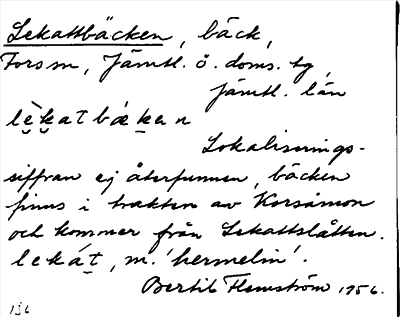 Lekattbäcken, bäck,
Fors sn, Jämtl. ö. doms. tg,
Jämtl. län
lèkatbǽkan
Lokaliserings-
siffran ej återfunnen, bäcken
finns i trakten av Korsåmon
och kommer från Lekattslåtten.
lekát, m. 'hermelin'.
Bertil Flemström 1956.